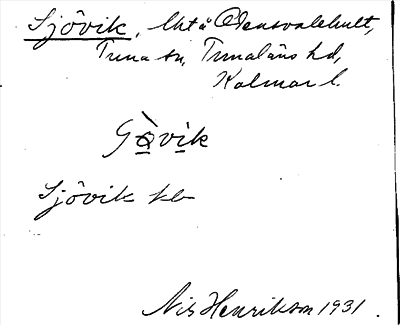 Sjövik, Uht å Odensvalehult,
Tuna sn, Tunaläns hd,
Kalmar l.
Gòvik
Sjövik kb
Nils Henrikson 1931.